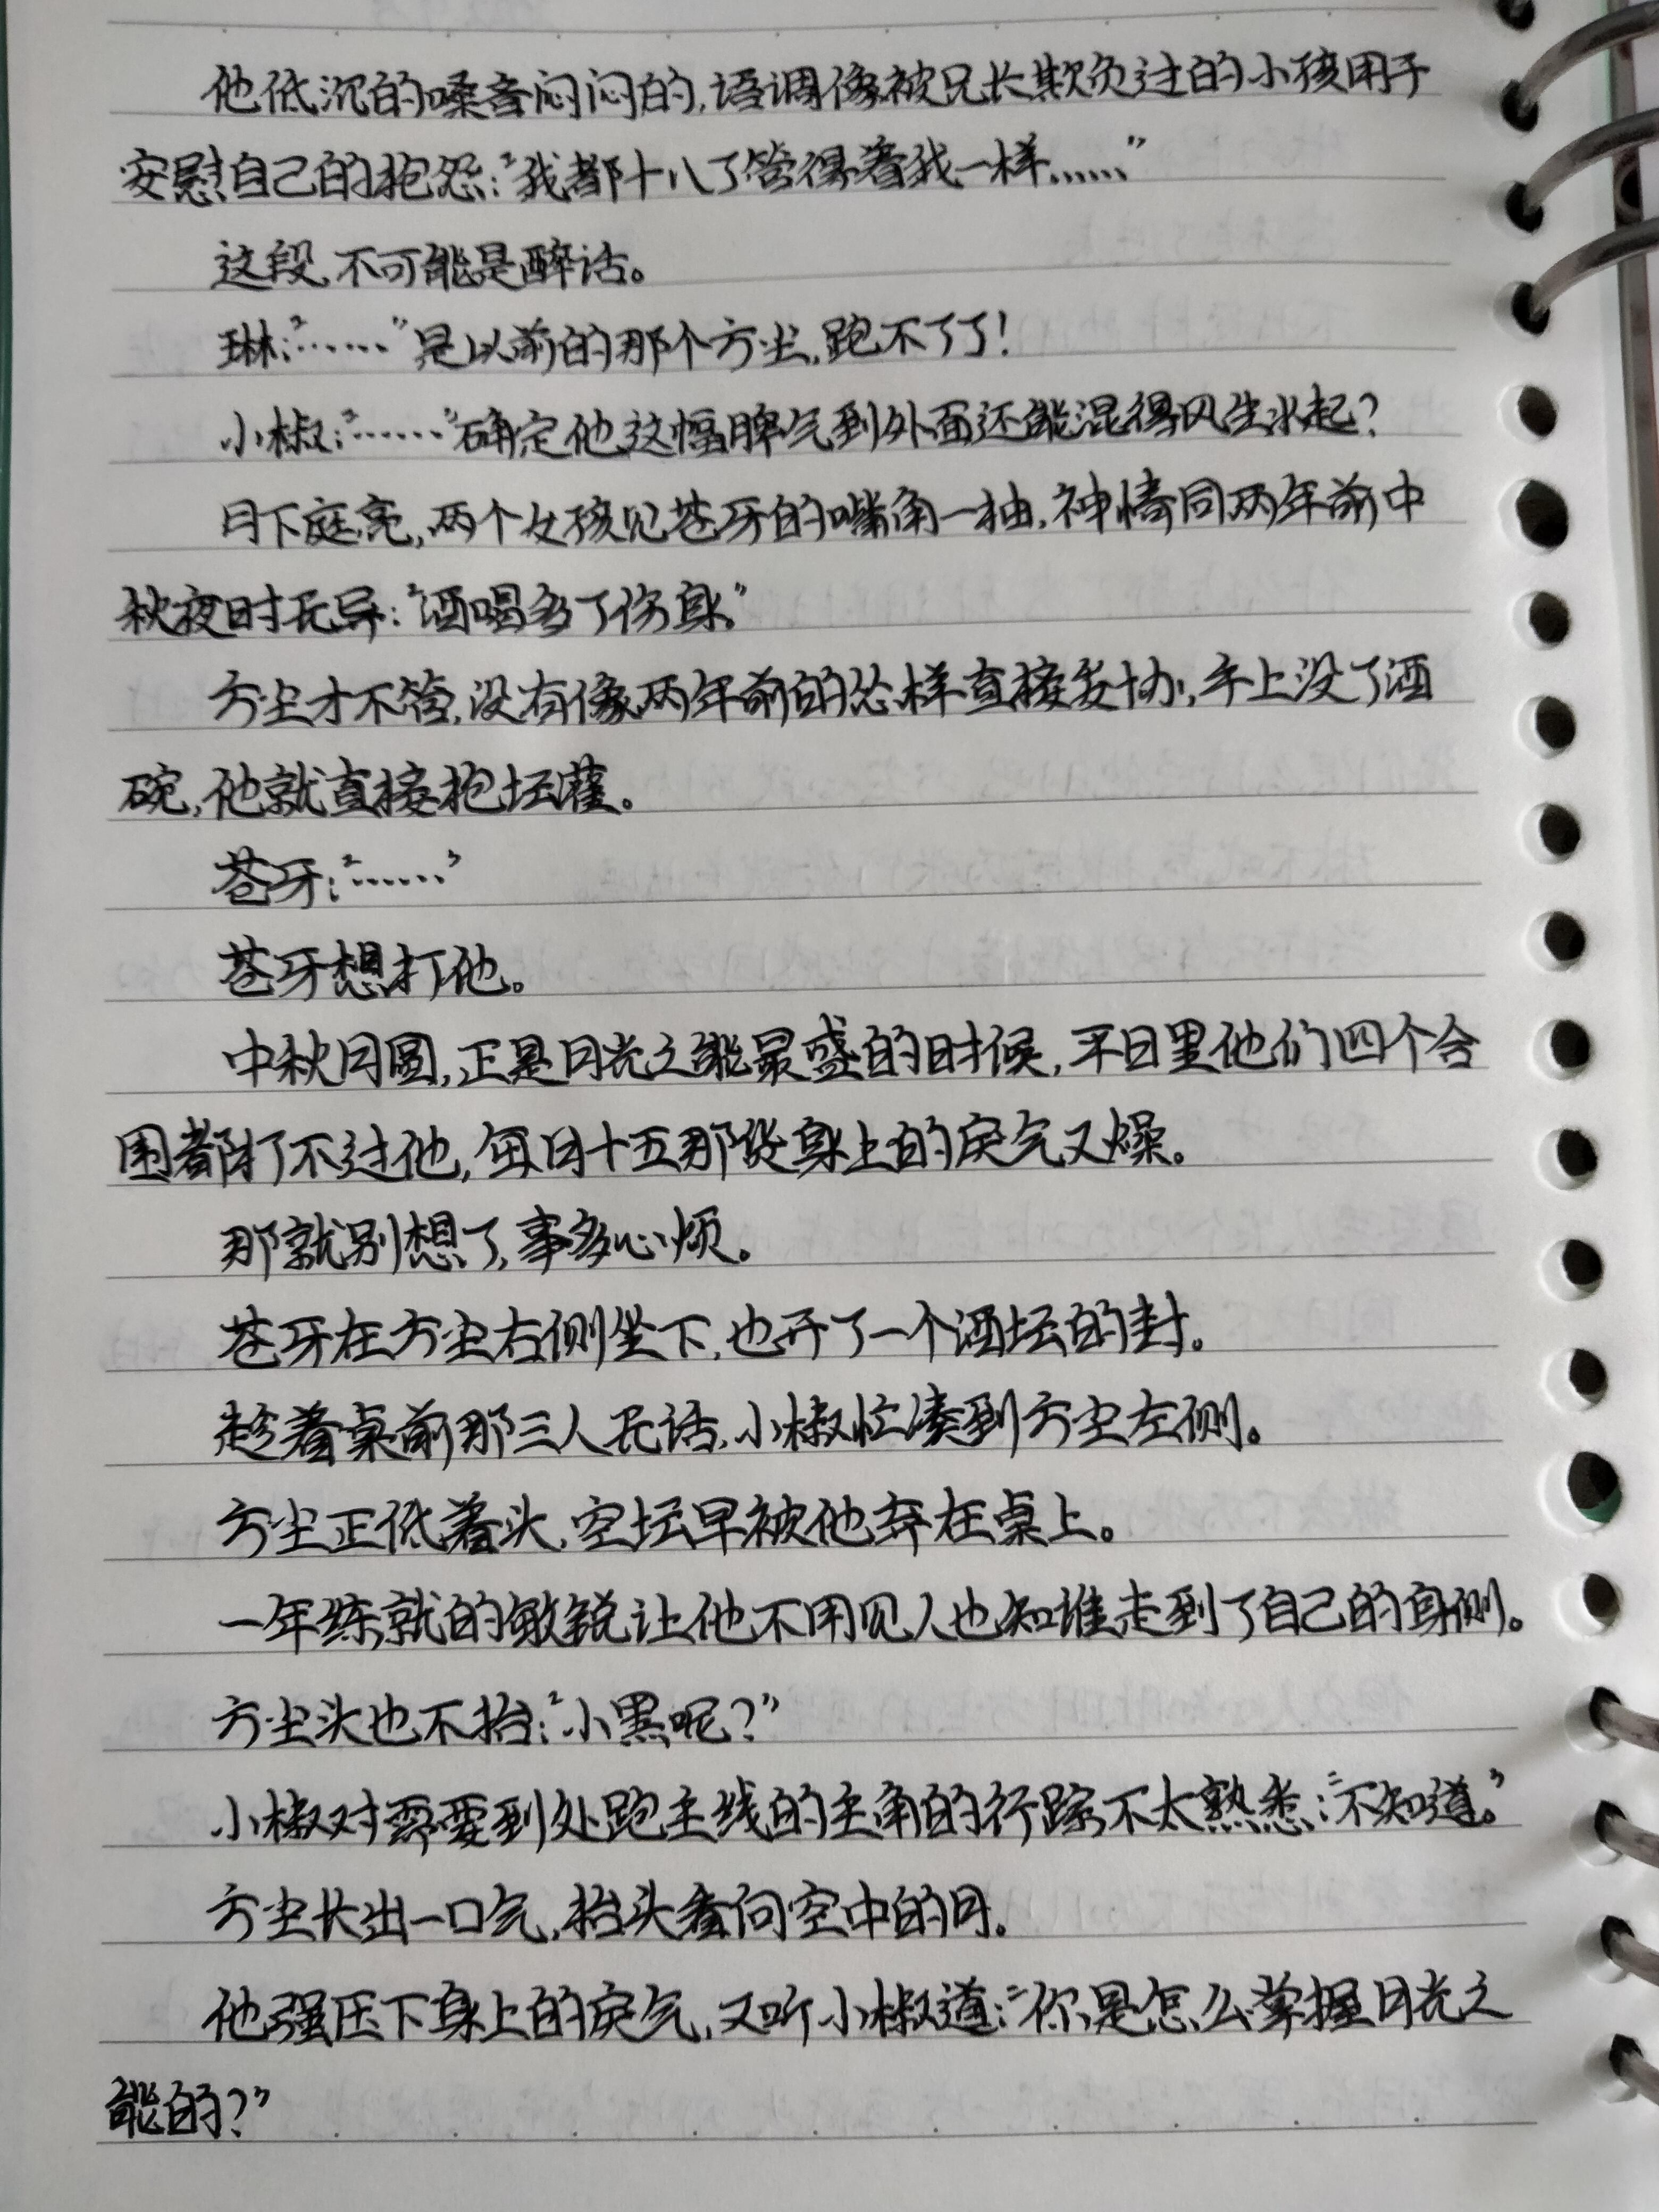 他低沉的嗓音闷闷的,语调像被兄长欺负过的小孩用于
安慰自己的抱怨:“我都十八了管得着我一样……”
这段,不可能是醉话。
琳:“……”是以前的那个方尘,跑不了了!
小椒:“……”确定他这幅脾气到外面还能混得风生水起?
月下庭亮,两个女孩见苍牙的嘴角一抽,神情同两年前中
秋夜时无异:“酒喝多了伤身。”
方尘才不管,没有像两年前的怂样直接妥协,手上没了酒
碗,他就直接抱坛灌。
苍牙:“……”
苍牙想打他。
中秋月圆,正是月光之能最盛的时候,平日里他们四个合
围都打不过他,每月十五那货身上的戾气又燥。
那就别想了,事多心烦。
苍牙在方尘右侧坐下,也开了一个酒坛的封。
趁着桌前那三人无话,小椒忙凑到方尘左侧。
方尘正低着头,空坛早被他弃在桌上。
一年练就的敏锐让他不用见人也知谁走到了自己的身侧。
方尘头也不抬:“小黑呢?”
小椒对需要到处跑主线的主角的行踪不太熟悉:“不知道。”
方尘长出一口气,抬头看向空中的月。
他强压下身上的戾气,又听小椒道:“你是怎么掌握月光之
能的?”